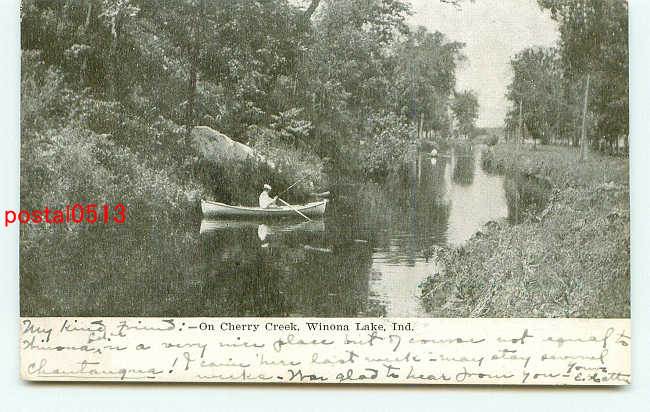 postal0513
On Cherry Creek, Winona Lake, Ind.
My kind friend:- of course not equal to
Winona, is a very nice place but
Chautauqua! I came here last week - may stay several
weeks. Was glad to hear from you - Yours